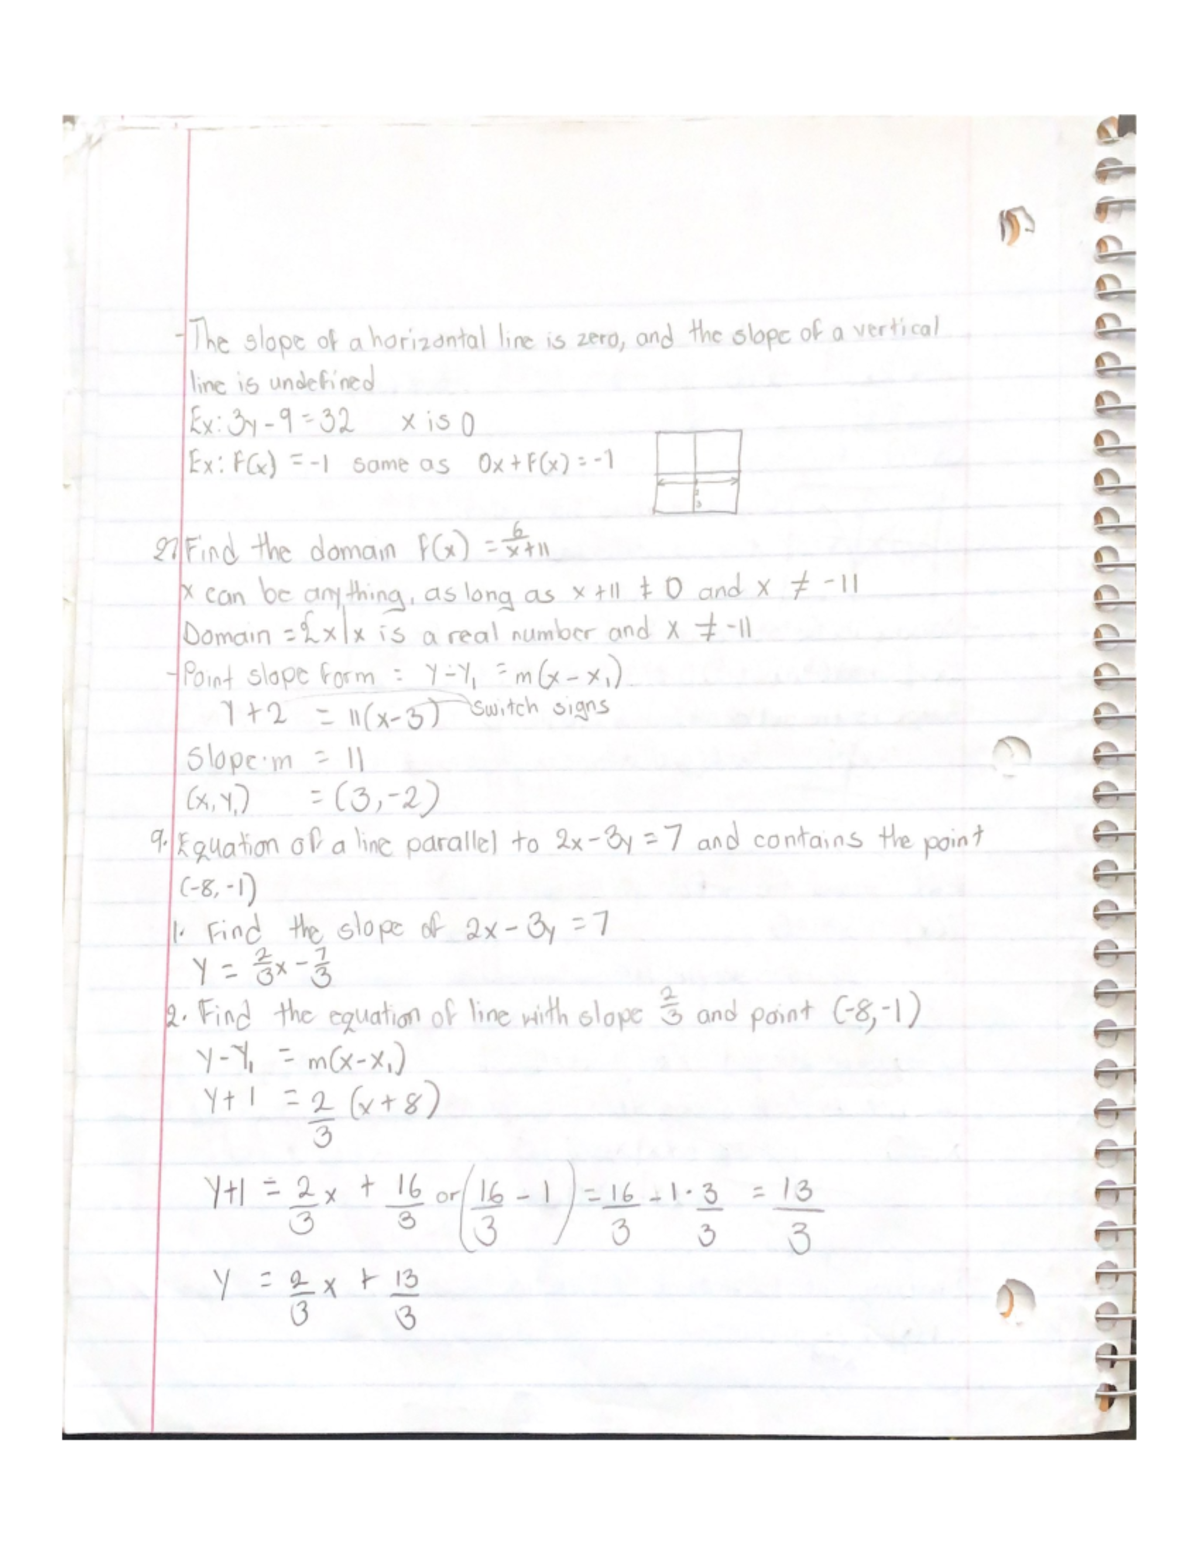 - The slope of a horizontal line is zero, and the slope of a vertical
line is undefined
Ex: 3y - 9 = 32 x is 0
Ex: F(x) = -1 same as 0x + F(x) = -1
27 Find the domain F(x) = 6/x+11
x can be anything, as long as x + 11 ≠ 0 and x ≠ -11
Domain = {x|x is a real number and x ≠ -11
- Point slope form = y - y₁ = m(x - x₁)
y + 2 = 11(x - 3) switch signs
Slope·m = 11
(x, y₁) = (3, -2)
9. Equation of a line parallel to 2x - 3y = 7 and contains the point
(-8, -1)
1. Find the slope of 2x - 3y = 7
y = 2/3x - 7/3
2. Find the equation of line with slope 2/3 and point (-8, -1)
y - y₁ = m(x - x₁)
y + 1 = 2/3 (x + 8)
y + 1 = 2/3 x + 16/3 or (16/3 - 1) = 16/3 - 1 · 3/3 = 13/3
y = 2/3 x + 13/3